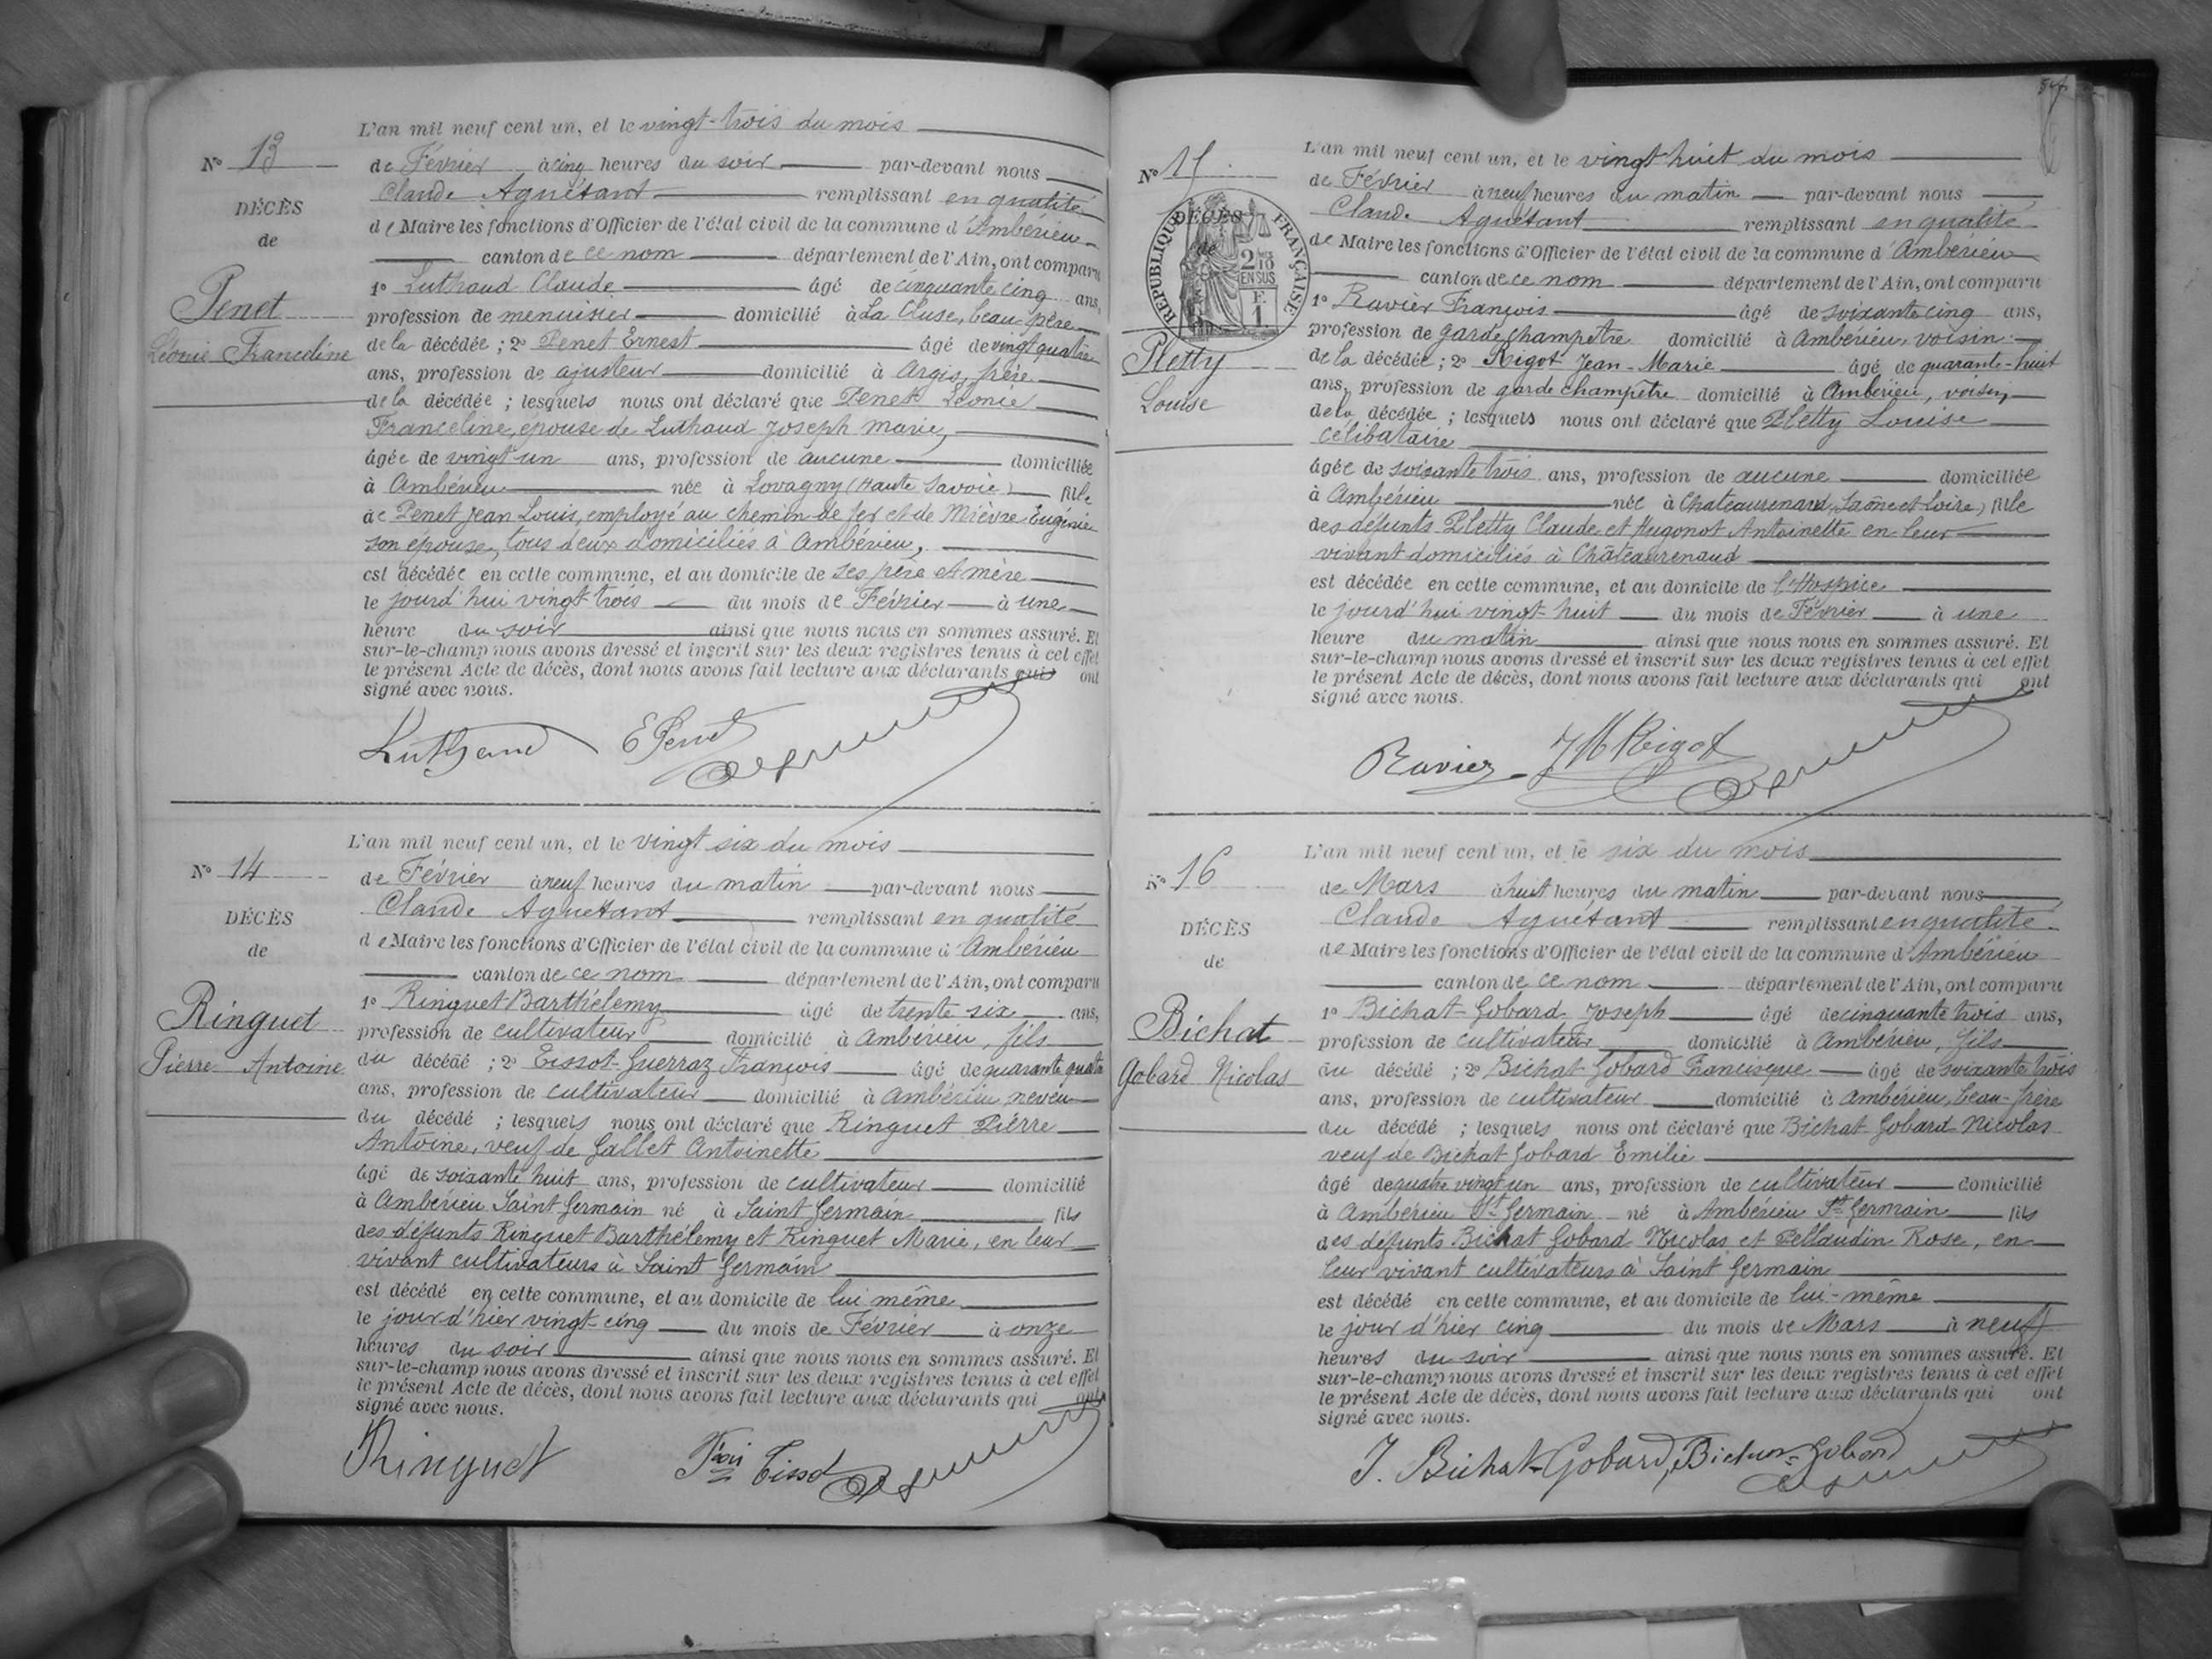 L'an mil neuf cent un, et le vingt-trois du mois
N° 13
de Février à cinq heures du soir par-devant nous
Claude Aguétant remplissant en qualité
DÉCÈS
de Maire les fonctions d'Officier de l'état civil de la commune d'Ambérieu
de
canton de ce nom département de l'Ain, ont comparu
1° Luthaud Claude âgé de cinquante cinq ans,
Penet
profession de menuisier domicilié à La Cluse, beau-père
Léonie Franceline
de la décédée ; 2° Penet Ernest âgé de vingt quatre
ans, profession de ajusteur domicilié à Argis, frère
de la décédée ; lesquels nous ont déclaré que Penet Léonie
Franceline, épouse de Luthaud Joseph Marie,
âgée de vingt un ans, profession de aucune domiciliée
à Ambérieu née à Lovagny (Haute Savoie) fille
de Penet Jean Louis, employé au chemin de fer et de Mièvre Eugénie
son épouse, tous deux domiciliés à Ambérieu,
est décédée en cette commune, et au domicile de ses père et mère
le jourd'hui vingt-trois du mois de Février à une
heure du soir ainsi que nous nous en sommes assuré. Et
sur-le-champ nous avons dressé et inscrit sur les deux registres tenus à cet effet
le présent Acte de décès, dont nous avons fait lecture aux déclarants qui ont
signé avec nous.
Luthaud E Penet
L'an mil neuf cent un, et le vingt six du mois
N° 14
de Février à neuf heures du matin par-devant nous
Claude Aguétant remplissant en qualité
DÉCÈS
de Maire les fonctions d'Officier de l'état civil de la commune d'Ambérieu
de
canton de ce nom département de l'Ain, ont comparu
1° Ringuet Barthélemy âgé de trente six ans,
Ringuet
profession de cultivateur domicilié à Ambérieu, fils
Pierre Antoine
du décédé ; 2° Tissot-Guerraz François âgé de quarante quatre
ans, profession de cultivateur domicilié à Ambérieu neveu
du décédé ; lesquels nous ont déclaré que Ringuet Pierre
Antoine, veuf de Gallet Antoinette
âgé de soixante huit ans, profession de cultivateur domicilié
à Ambérieu Saint Germain né à Saint Germain fils
des défunts Ringuet Barthélemy et Ringuet Marie, en leur
vivant cultivateurs à Saint Germain
est décédé en cette commune, et au domicile de lui même
le jour d'hier vingt-cinq du mois de Février à onze
heures du soir ainsi que nous nous en sommes assuré. Et
sur-le-champ nous avons dressé et inscrit sur les deux registres tenus à cet effet
le présent Acte de décès, dont nous avons fait lecture aux déclarants qui ont
signé avec nous.
Ringuet Fçois Tissot
L'an mil neuf cent un, et le vingt huit du mois
N° 15
de Février à neuf heures du matin par-devant nous
Claude Aguétant remplissant en qualité
DÉCÈS
de
RÉPUBLIQUE FRANÇAISE
2/10 EN SUS
F. 1
de Maire les fonctions d'Officier de l'état civil de la commune d'Ambérieu
canton de ce nom département de l'Ain, ont comparu
1° Ravier François âgé de soixante cinq ans,
profession de garde champêtre domicilié à Ambérieu, voisin
Pletty
Louise
de la décédée ; 2° Rigot Jean-Marie âgé de quarante-huit
ans, profession de garde champêtre domicilié à Ambérieu, voisin,
de la décédée ; lesquels nous ont déclaré que Pletty Louise
célibataire
âgée de soixante trois ans, profession de aucune domiciliée
à Ambérieu née à Chateaurenard, (Saône et Loire) fille
des défunts Pletty Claude et Hugonot Antoinette en leur
vivant domiciliés à Châteaurenaud
est décédée en cette commune, et au domicile de l'Hospice
le jourd'hui vingt-huit du mois de Février à une
heure du matin ainsi que nous nous en sommes assuré. Et
sur-le-champ nous avons dressé et inscrit sur les deux registres tenus à cet effet
le présent Acte de décès, dont nous avons fait lecture aux déclarants qui ont
signé avec nous.
Ravier JM Rigot
L'an mil neuf cent un, et le six du mois
N° 16
de Mars à huit heures du matin par-devant nous
Claude Aguétant remplissant en qualité
DÉCÈS
de Maire les fonctions d'Officier de l'état civil de la commune d'Ambérieu
de
canton de ce nom département de l'Ain, ont comparu
1° Bichat-Gobard Joseph âgé de cinquante trois ans,
Bichat
profession de cultivateur domicilié à Ambérieu, fils
Gobard Nicolas
du décédé ; 2° Bichat Gobard Francisque âgé de soixante trois
ans, profession de cultivateur domicilié à Ambérieu, beau-frère
du décédé ; lesquels nous ont déclaré que Bichat Gobard Nicolas
veuf de Bichat Gobard Emilie
âgé de quatre vingt un ans, profession de cultivateur domicilié
à Ambérieu St Germain né à Ambérieu St Germain fils
des défunts Bichat Gobard Nicolas et Pellaudin Rose, en
leur vivant cultivateurs à Saint Germain
est décédé en cette commune, et au domicile de lui-même
le jour d'hier cinq du mois de Mars à neuf
heures du soir ainsi que nous nous en sommes assuré. Et
sur-le-champ nous avons dressé et inscrit sur les deux registres tenus à cet effet
le présent Acte de décès, dont nous avons fait lecture aux déclarants qui ont
signé avec nous.
J. Bichat-Gobard, Bichat-Gobard